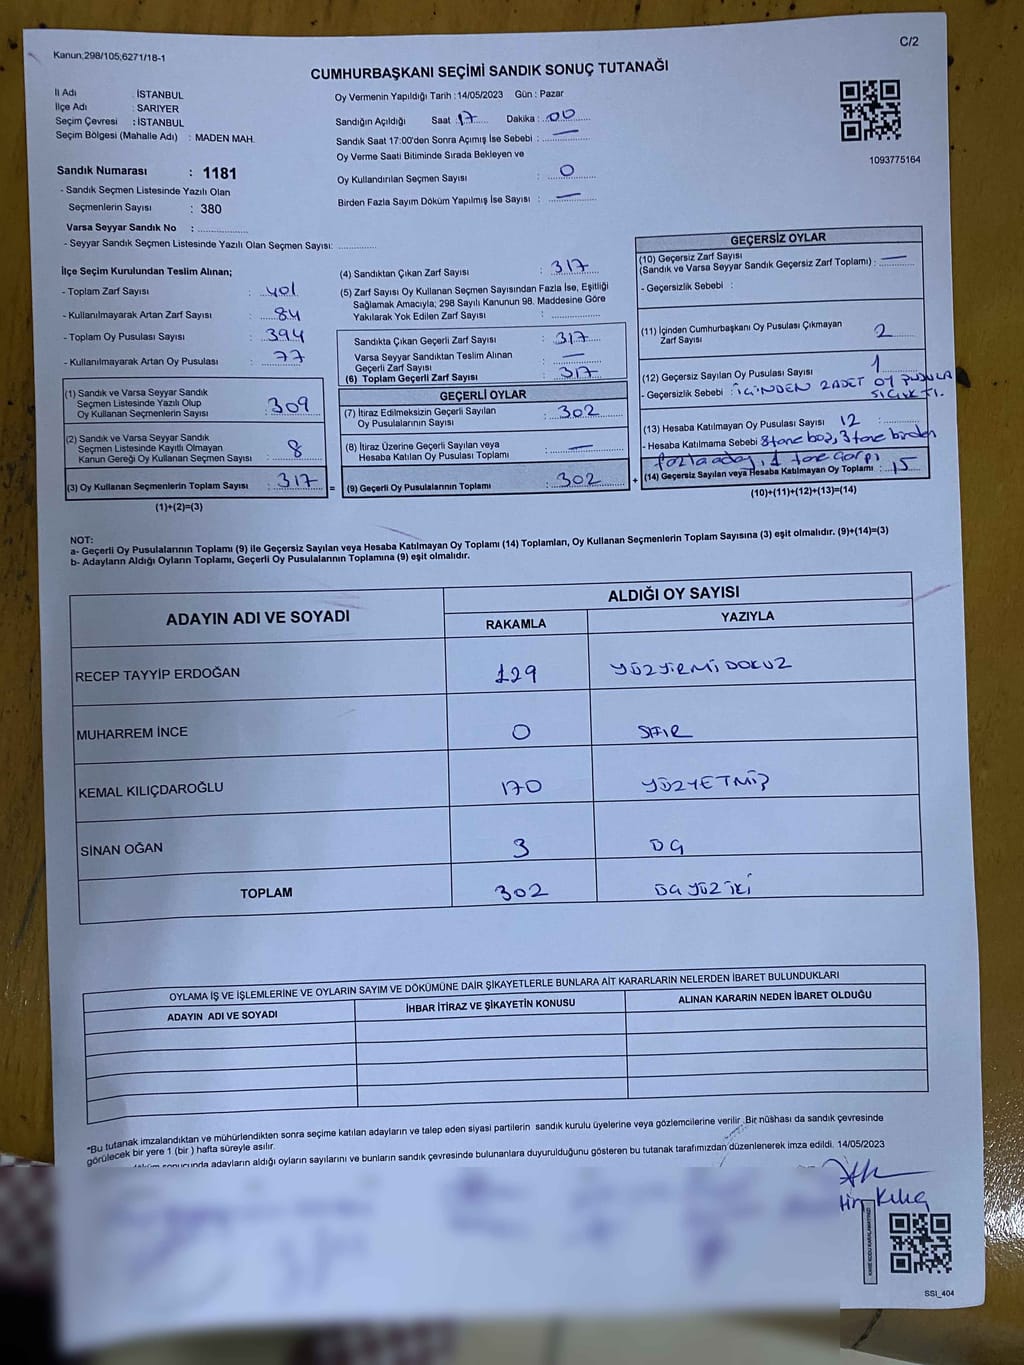 Kanun;298/105;6271/18-1
C/2
CUMHURBAŞKANI SEÇİMİ SANDIK SONUÇ TUTANAĞI
İl Adı : İSTANBUL
İlçe Adı : SARIYER
Seçim Çevresi : İSTANBUL
Seçim Bölgesi (Mahalle Adı) : MADEN MAH.
Sandık Numarası : 1181
- Sandık Seçmen Listesinde Yazılı Olan
Seçmenlerin Sayısı : 380
Varsa Seyyar Sandık No :
- Seyyar Sandık Seçmen Listesinde Yazılı Olan Seçmen Sayısı:
Oy Vermenin Yapıldığı Tarih :14/05/2023 Gün : Pazar
Sandığın Açıldığı Saat : 17 Dakika : 00
Sandık Saat 17:00'den Sonra Açımış İse Sebebi : —
Oy Verme Saati Bitiminde Sırada Bekleyen ve
Oy Kullandırılan Seçmen Sayısı : 0
Birden Fazla Sayım Döküm Yapılmış İse Sayısı : —
1093775164
İlçe Seçim Kurulundan Teslim Alınan;
- Toplam Zarf Sayısı : 401
- Kullanılmayarak Artan Zarf Sayısı : 84
- Toplam Oy Pusulası Sayısı : 394
- Kullanılmayarak Artan Oy Pusulası : 77
(1) Sandık ve Varsa Seyyar Sandık
Seçmen Listesinde Yazılı Olup
Oy Kullanan Seçmenlerin Sayısı : 309
(2) Sandık ve Varsa Seyyar Sandık
Seçmen Listesinde Kayıtlı Olmayan
Kanun Gereği Oy Kullanan Seçmen Sayısı : 8
(3) Oy Kullanan Seçmenlerin Toplam Sayısı : 317
(1)+(2)=(3)
(4) Sandıktan Çıkan Zarf Sayısı : 317
(5) Zarf Sayısı Oy Kullanan Seçmen Sayısından Fazla İse, Eşitliği
Sağlamak Amacıyla; 298 Sayılı Kanunun 98. Maddesine Göre
Yakılarak Yok Edilen Zarf Sayısı :
Sandıkta Çıkan Geçerli Zarf Sayısı : 317
Varsa Seyyar Sandıktan Teslim Alınan
Geçerli Zarf Sayısı : —
(6) Toplam Geçerli Zarf Sayısı : 317
=
GEÇERLİ OYLAR
(7) İtiraz Edilmeksizin Geçerli Sayılan
Oy Pusulalarının Sayısı : 302
(8) İtiraz Üzerine Geçerli Sayılan veya
Hesaba Katılan Oy Pusulası Toplamı : —
(9) Geçerli Oy Pusulalarının Toplamı : 302
+
GEÇERSİZ OYLAR
(10) Geçersiz Zarf Sayısı
(Sandık ve Varsa Seyyar Sandık Geçersiz Zarf Toplamı) : —
- Geçersizlik Sebebi :
(11) İçinden Cumhurbaşkanı Oy Pusulası Çıkmayan
Zarf Sayısı : 2
(12) Geçersiz Sayılan Oy Pusulası Sayısı : 1
- Geçersizlik Sebebi : İÇİNDEN 2 ADET OY PUSULA
(13) Hesaba Katılmayan Oy Pusulası Sayısı : 12
- Hesaba Katılmama Sebebi : 8 tane boş, 3 tane birden
fazla aday, 1 tane çarpı
(14) Geçersiz Sayılan veya Hesaba Katılmayan Oy Toplamı : 15
(10)+(11)+(12)+(13)=(14)
NOT:
a- Geçerli Oy Pusulalarının Toplamı (9) ile Geçersiz Sayılan veya Hesaba Katılmayan Oy Toplamı (14) Toplamları, Oy Kullanan Seçmenlerin Toplam Sayısına (3) eşit olmalıdır. (9)+(14)=(3)
b- Adayların Aldığı Oyların Toplamı, Geçerli Oy Pusulalarının Toplamına (9) eşit olmalıdır.
ADAYIN ADI VE SOYADI
ALDIĞI OY SAYISI
RAKAMLA YAZIYLA
RECEP TAYYİP ERDOĞAN 129 YÜZYİRMİ DOKUZ
MUHARREM İNCE 0 SIFIR
KEMAL KILIÇDAROĞLU 170 YÜZYETMİŞ
SİNAN OĞAN 3 ÜÇ
TOPLAM 302 ÜÇ YÜZ İKİ
OYLAMA İŞ VE İŞLEMLERİNE VE OYLARIN SAYIM VE DÖKÜMÜNE DAİR ŞİKAYETLERLE BUNLARA AİT KARARLARIN NELERDEN İBARET BULUNDUKLARI
ADAYIN ADI VE SOYADI İHBAR İTİRAZ VE ŞİKAYETİN KONUSU ALINAN KARARIN NEDEN İBARET OLDUĞU
*Bu tutanak imzalandıktan ve mühürlendikten sonra seçime katılan adayların ve talep eden siyasi partilerin sandık kurulu üyelerine veya gözlemcilerine verilir. Bir nüshası da sandık çevresinde
görülecek bir yere 1 (bir ) hafta süreyle asılır.
sonucunda adayların aldığı oyların sayılarını ve bunların sandık çevresinde bulunanlara duyurulduğunu gösteren bu tutanak tarafımızdan düzenlenerek imza edildi. 14/05/2023
KARE KODU KARALAMAYINIZ
SSI_404